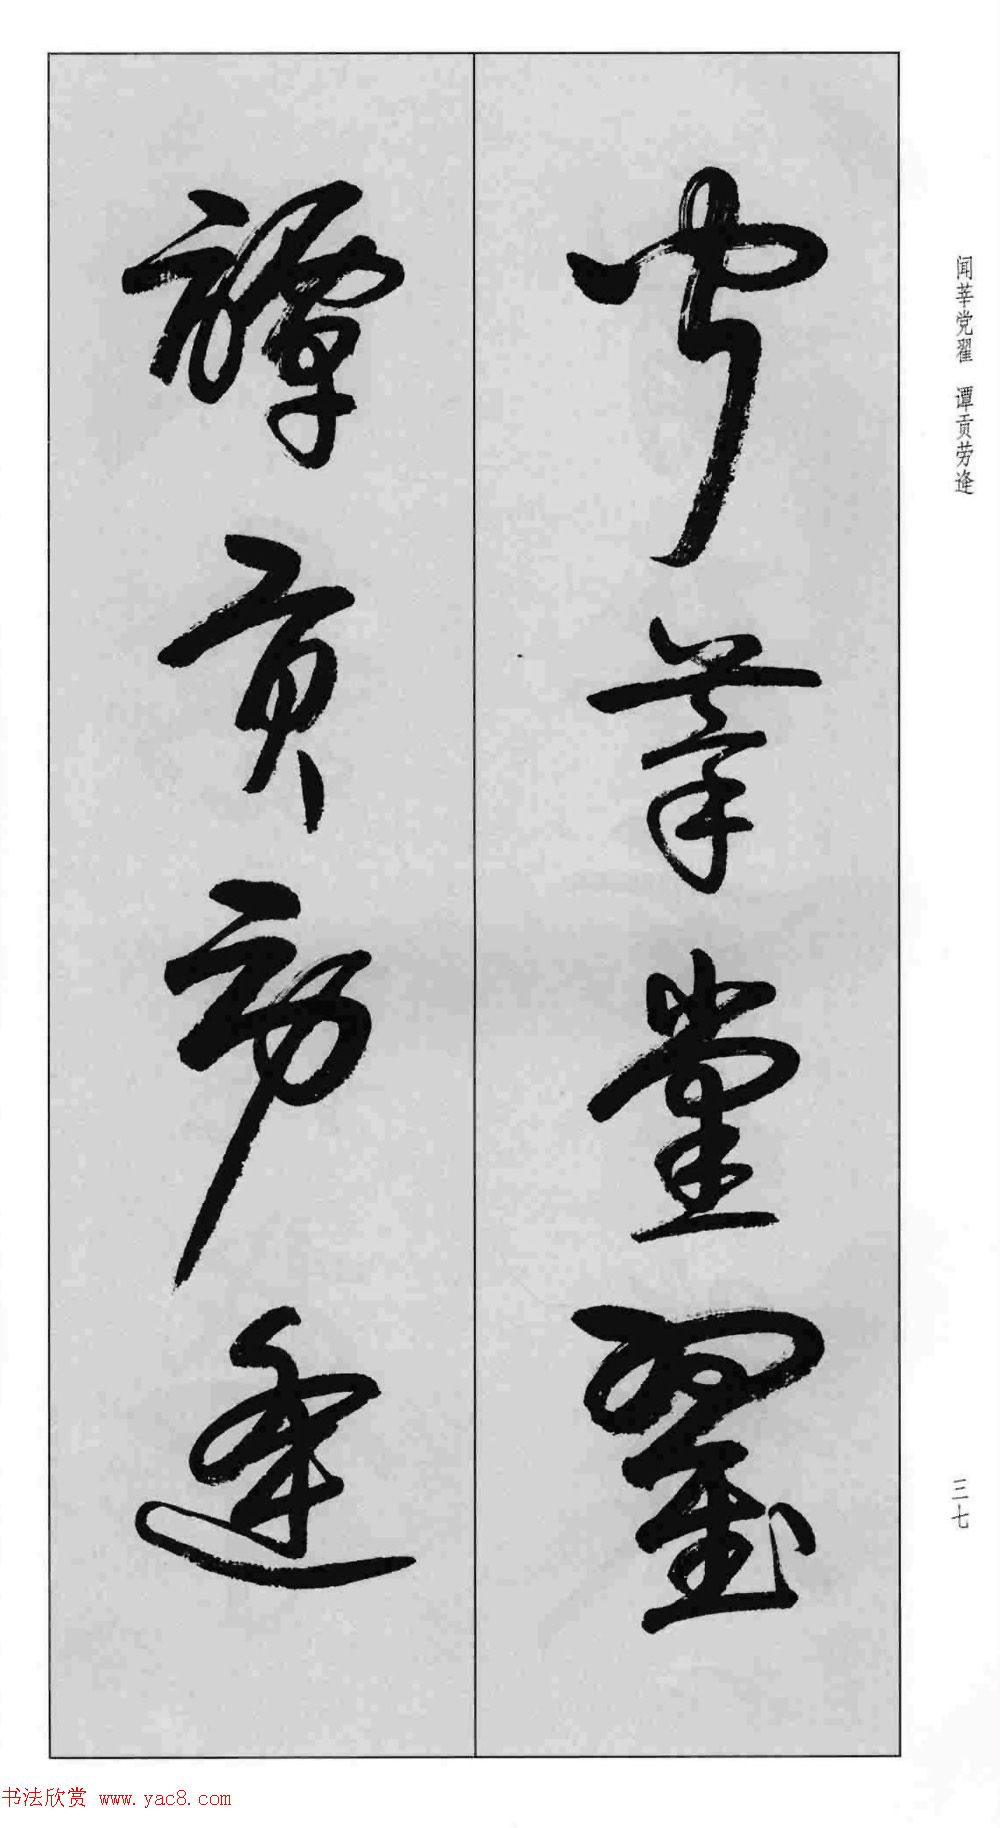 闻莘党翟 谭贡劳逄
闻莘党翟
譚贡劳逄
三七
书法欣赏 www.yac8.com